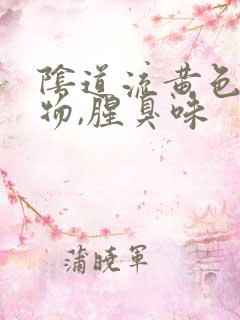 陰道流黄色
物,腥臭味
蒲曉軍